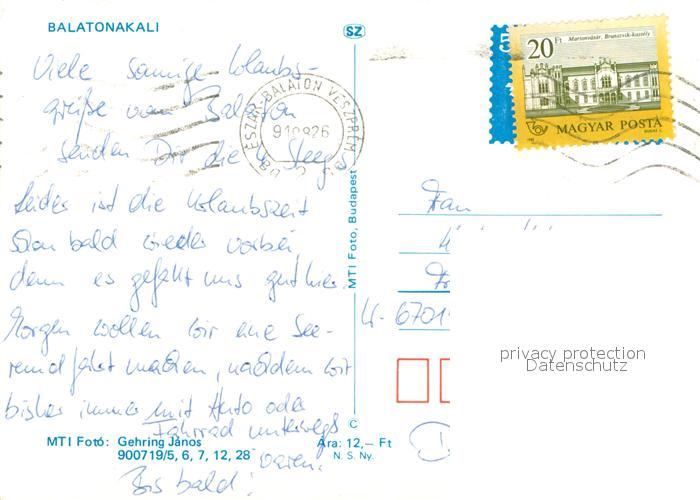 BALATONAKALI
SZ
Viele sonnige Urlaubs-
grüße vom Balaton
senden Dir die 4 Steegs
Leider ist die Urlaubszeit
schon bald wieder vorbei,
denn es gefällt uns gut hier.
Morgen wollen wir eine See-
rundfahrt machen, nachdem wir
bisher immer mit Auto oder
Fahrrad unterwegs
waren.
Bis bald!
MTI Fotó: Gehring János
900719/5, 6, 7, 12, 28
Ára: 12,– Ft
N. S. Ny.
C
MTI Foto, Budapest
ÉSZAK-BALATON VESZPRÉM
20 Ft
Martonvásár, Brunszvik-kastély
MAGYAR POSTA
Frau
W-6701
privacy protection
Datenschutz